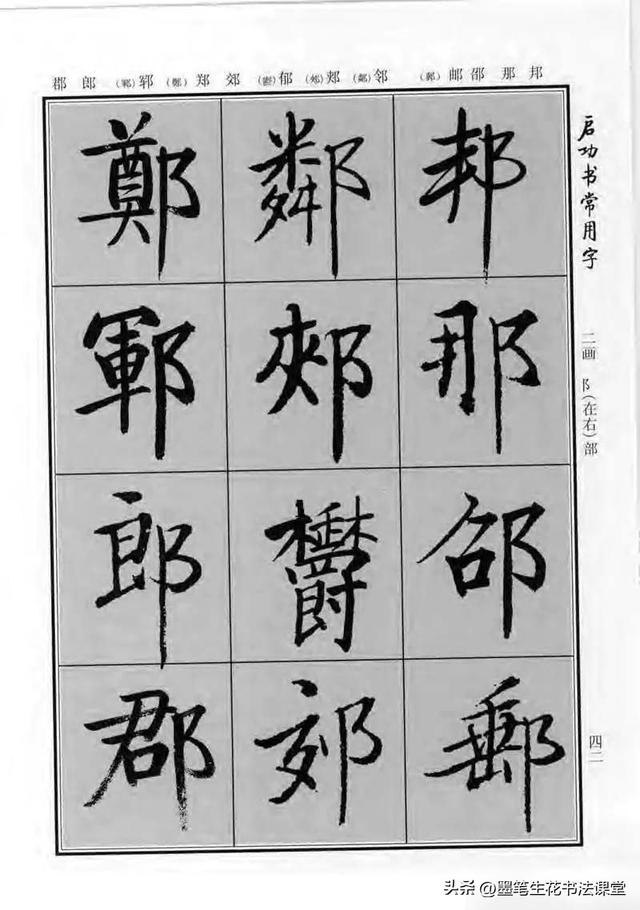 邦 那 邵 邮(郵) 邻(鄰) 郏(郟) 郁(鬱) 郊 郑(鄭) 郓(鄆) 郎 郡
启功书常用字
二画 阝(在右)部
四二
邦那邵郵
鄰郟鬱郊
鄭鄆郎郡
头条 @墨笔生花书法课堂